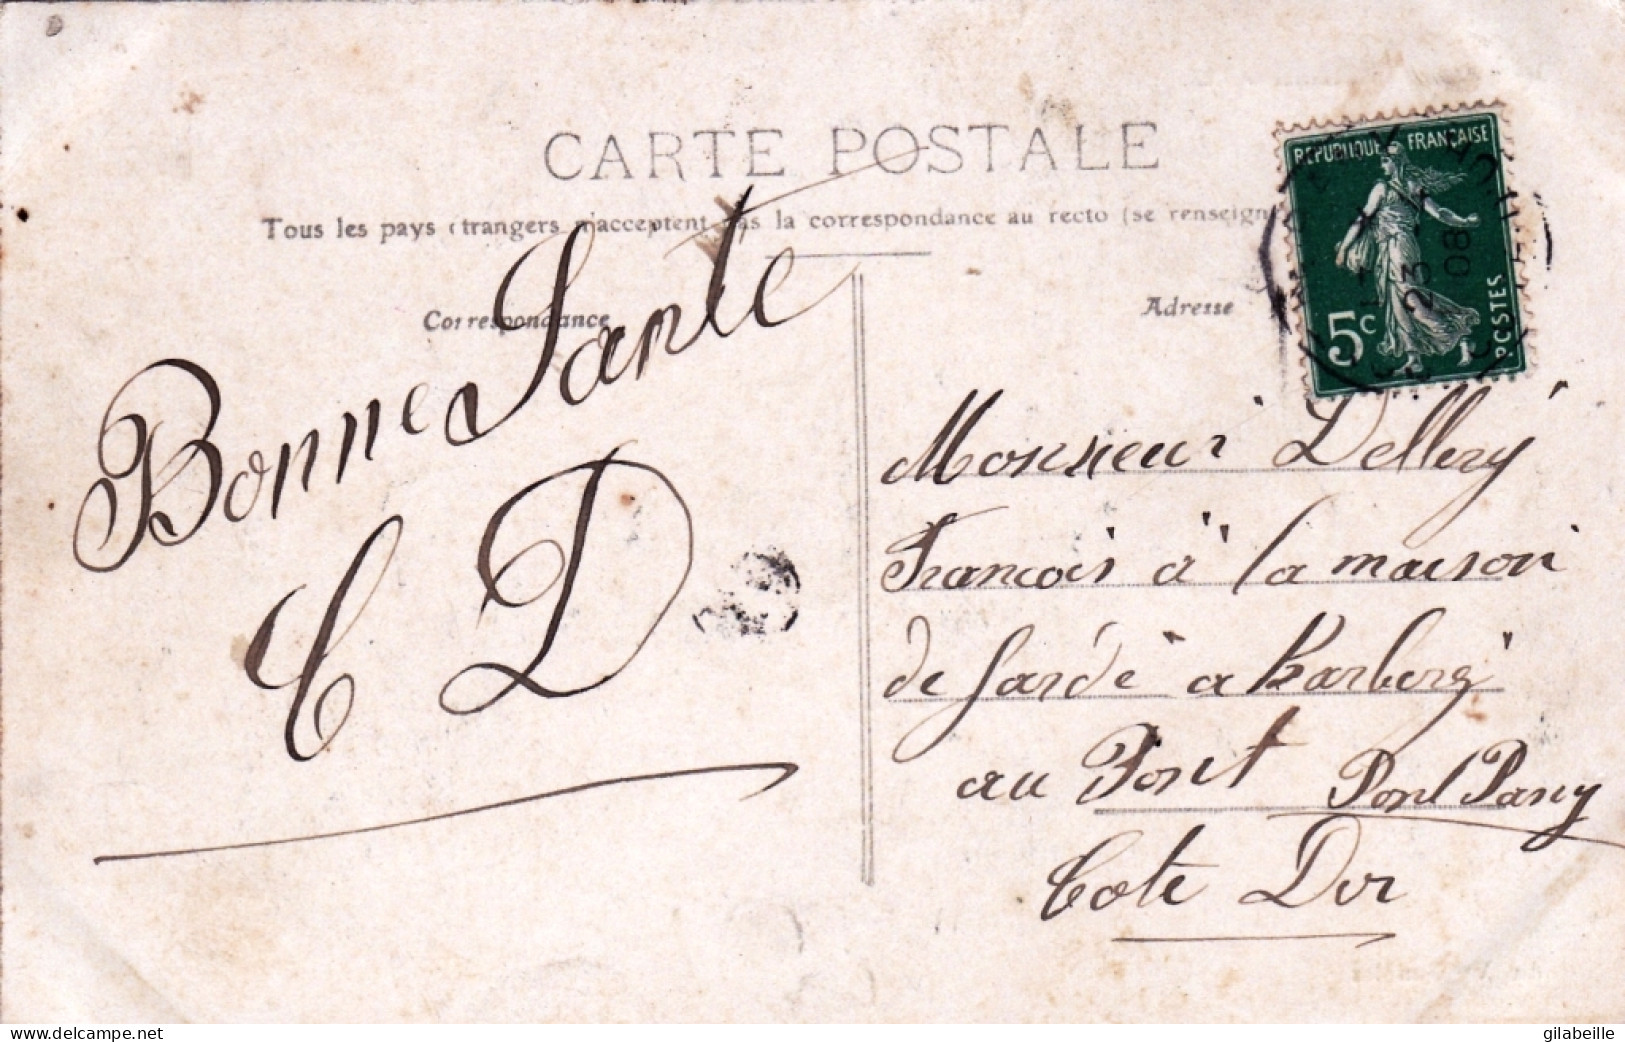 CARTE POSTALE
Tous les pays étrangers n'acceptent pas la correspondance au recto (se renseign
Correspondance
Bonne Sante
C D
Adresse
REPUBLIQUE FRANÇAISE
5c
POSTES
23 - 4
08
Monsieur Dellery
Francois à la maison
de Garde a Barberg
au Pont Pont Pany
Cote Dor
www.delcampe.net
gilabeille